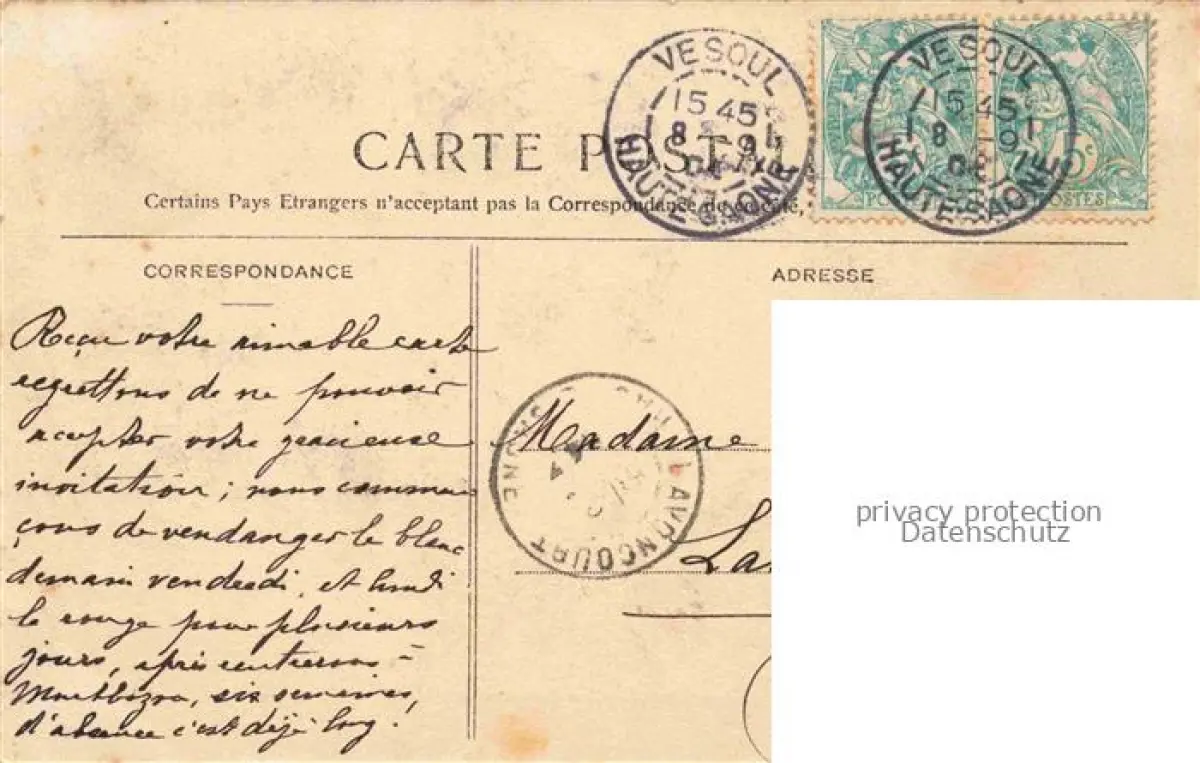 VESOUL
15 45
8 -9
HAUTE-SAONE
VESOUL
15 45
8 -9
HAUTE-SAONE
POSTES
CARTE POST
Certains Pays Etrangers n'acceptant pas la Correspondance
CORRESPONDANCE
ADRESSE
Reçu votre aimable carte
regrettons de ne pouvoir
accepter votre gracieuse
invitation; nous commen
çons de vendanger le blanc
demain vendredi, et lundi
le rouge pour plusieurs
jours, après rentrerons à
Montbozon, six semaines,
d'absence c'est déjà long!
Madame
LAVONCOURT
La
privacy protection
Datenschutz